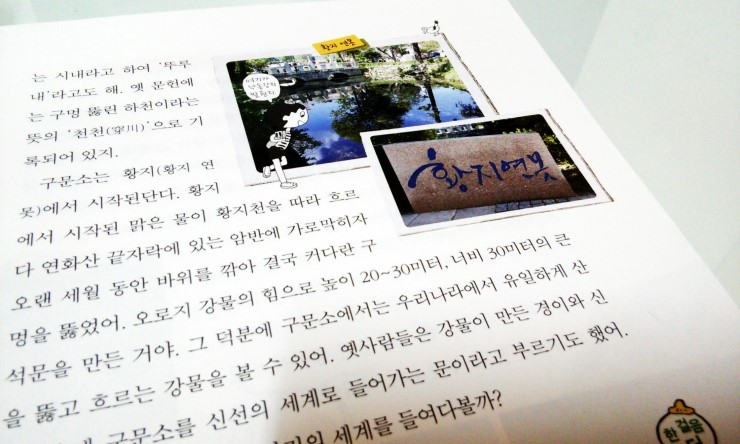 황지 연못
여기가
낙동강의
발원지
황지연못
는 시내라고 하여 '뚜루
내'라고도 해. 옛 문헌에
는 구멍 뚫린 하천이라는
뜻의 '천천(穿川)'으로 기
록되어 있지.
구문소는 황지(황지 연
못)에서 시작된단다. 황지
에서 시작된 맑은 물이 황지천을 따라 흐르
다 연화산 끝자락에 있는 암반에 가로막히자
오랜 세월 동안 바위를 깎아 결국 커다란 구
멍을 뚫었어. 오로지 강물의 힘으로 높이 20~30미터, 너비 30미터의 큰
석문을 만든 거야. 그 덕분에 구문소에서는 우리나라에서 유일하게 산
을 뚫고 흐르는 강물을 볼 수 있어. 옛사람들은 강물이 만든 경이와 신
구문소를 신선의 세계로 들어가는 문이라고 부르기도 했어.
세계를 들여다볼까?
한 걸음